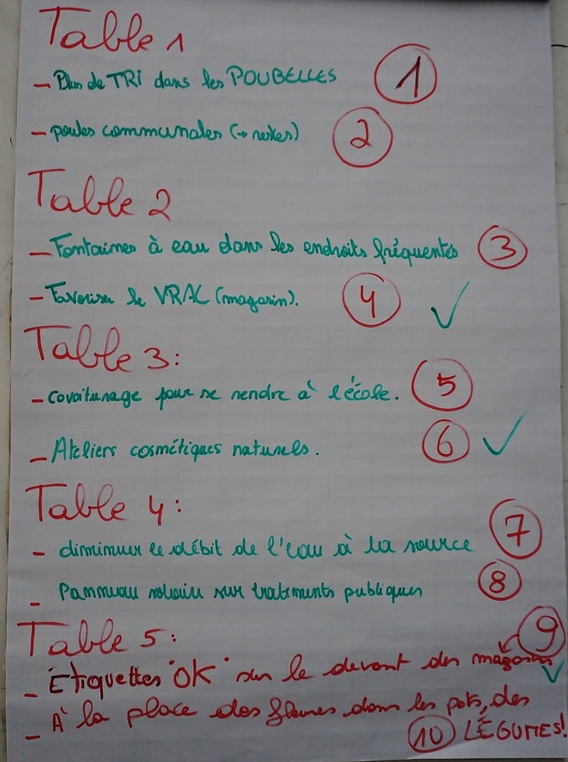 Table 1
- Plus de TRI dans les POUBELLES 1
- poules communales (→ restes) 2
Table 2
- Fontaines à eau dans les endroits fréquentés 3
- Favoriser le VRAC (magasin). 4 ✓
Table 3:
- Covoiturage pour se rendre à l'école. 5
- Ateliers cosmétiques naturels. 6 ✓
Table 4:
- diminuer le débit de l'eau à la source 7
- Panneau solaire sur batiments publiques 8
Table 5: 9
- Étiquettes "OK" sur le devant des magasins ✓
- À la place des fleurs dans les pots, des
10 LÉGUMES!